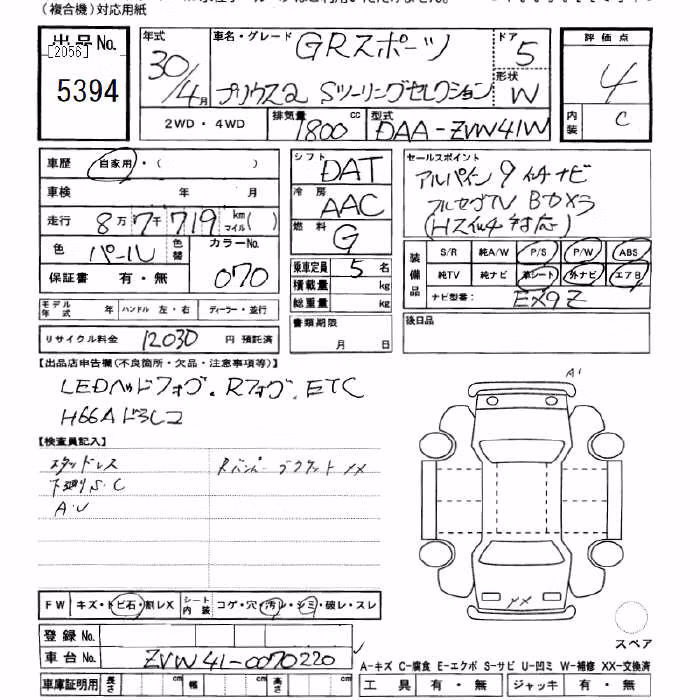 (複合機)対応用紙
出品No. [2056] 5394
年式 30/4月
車名・グレード GRスポーツ
プリウスα Sツーリングセレクション
ドア 5
形状 W
2WD・4WD 排気量 1800 cc 型式 DAA-ZVW41W
評価点 4
内装 C
車歴 自家用・( )
車検 年 月
走行 8万7千719 km マイル( )
色 パール 色替 カラーNo. 070
保証書 有・無
モデル年式 年 ハンドル 左・右 ディーラー・並行
リサイクル料金 12030 円 預託済
シフト DAT
冷房 AAC
燃料 G
乗車定員 5 名
積載量 kg
総重量 kg
書類期限 月 日
セールスポイント
アルパイン9インチナビ
フルセグTV Bカメラ
装備品 S/R 純A/W P/S P/W ABS
純TV 純ナビ 革シート 外ナビ エアB
ナビ型番: EX9Z
後日品
【出品店申告欄(不良箇所・欠品・注意事項等)】
LEDヘッドフォグ.Rフォグ.ETC
【検査員記入】
スタッドレス
下廻りS.C
A.U
A1
FW キズ・トビ石・割レX シート内装 コゲ・穴・汚レ・シミ・破レ・スレ
登録No.
車台No. ZVW41-0070220
車庫証明用 長さ cm 幅 cm 高さ cm
スペア
A-キズ C-腐食 E-エクボ S-サビ U-凹ミ W-補修 XX-交換済
工具 有・無 ジャッキ 有・無